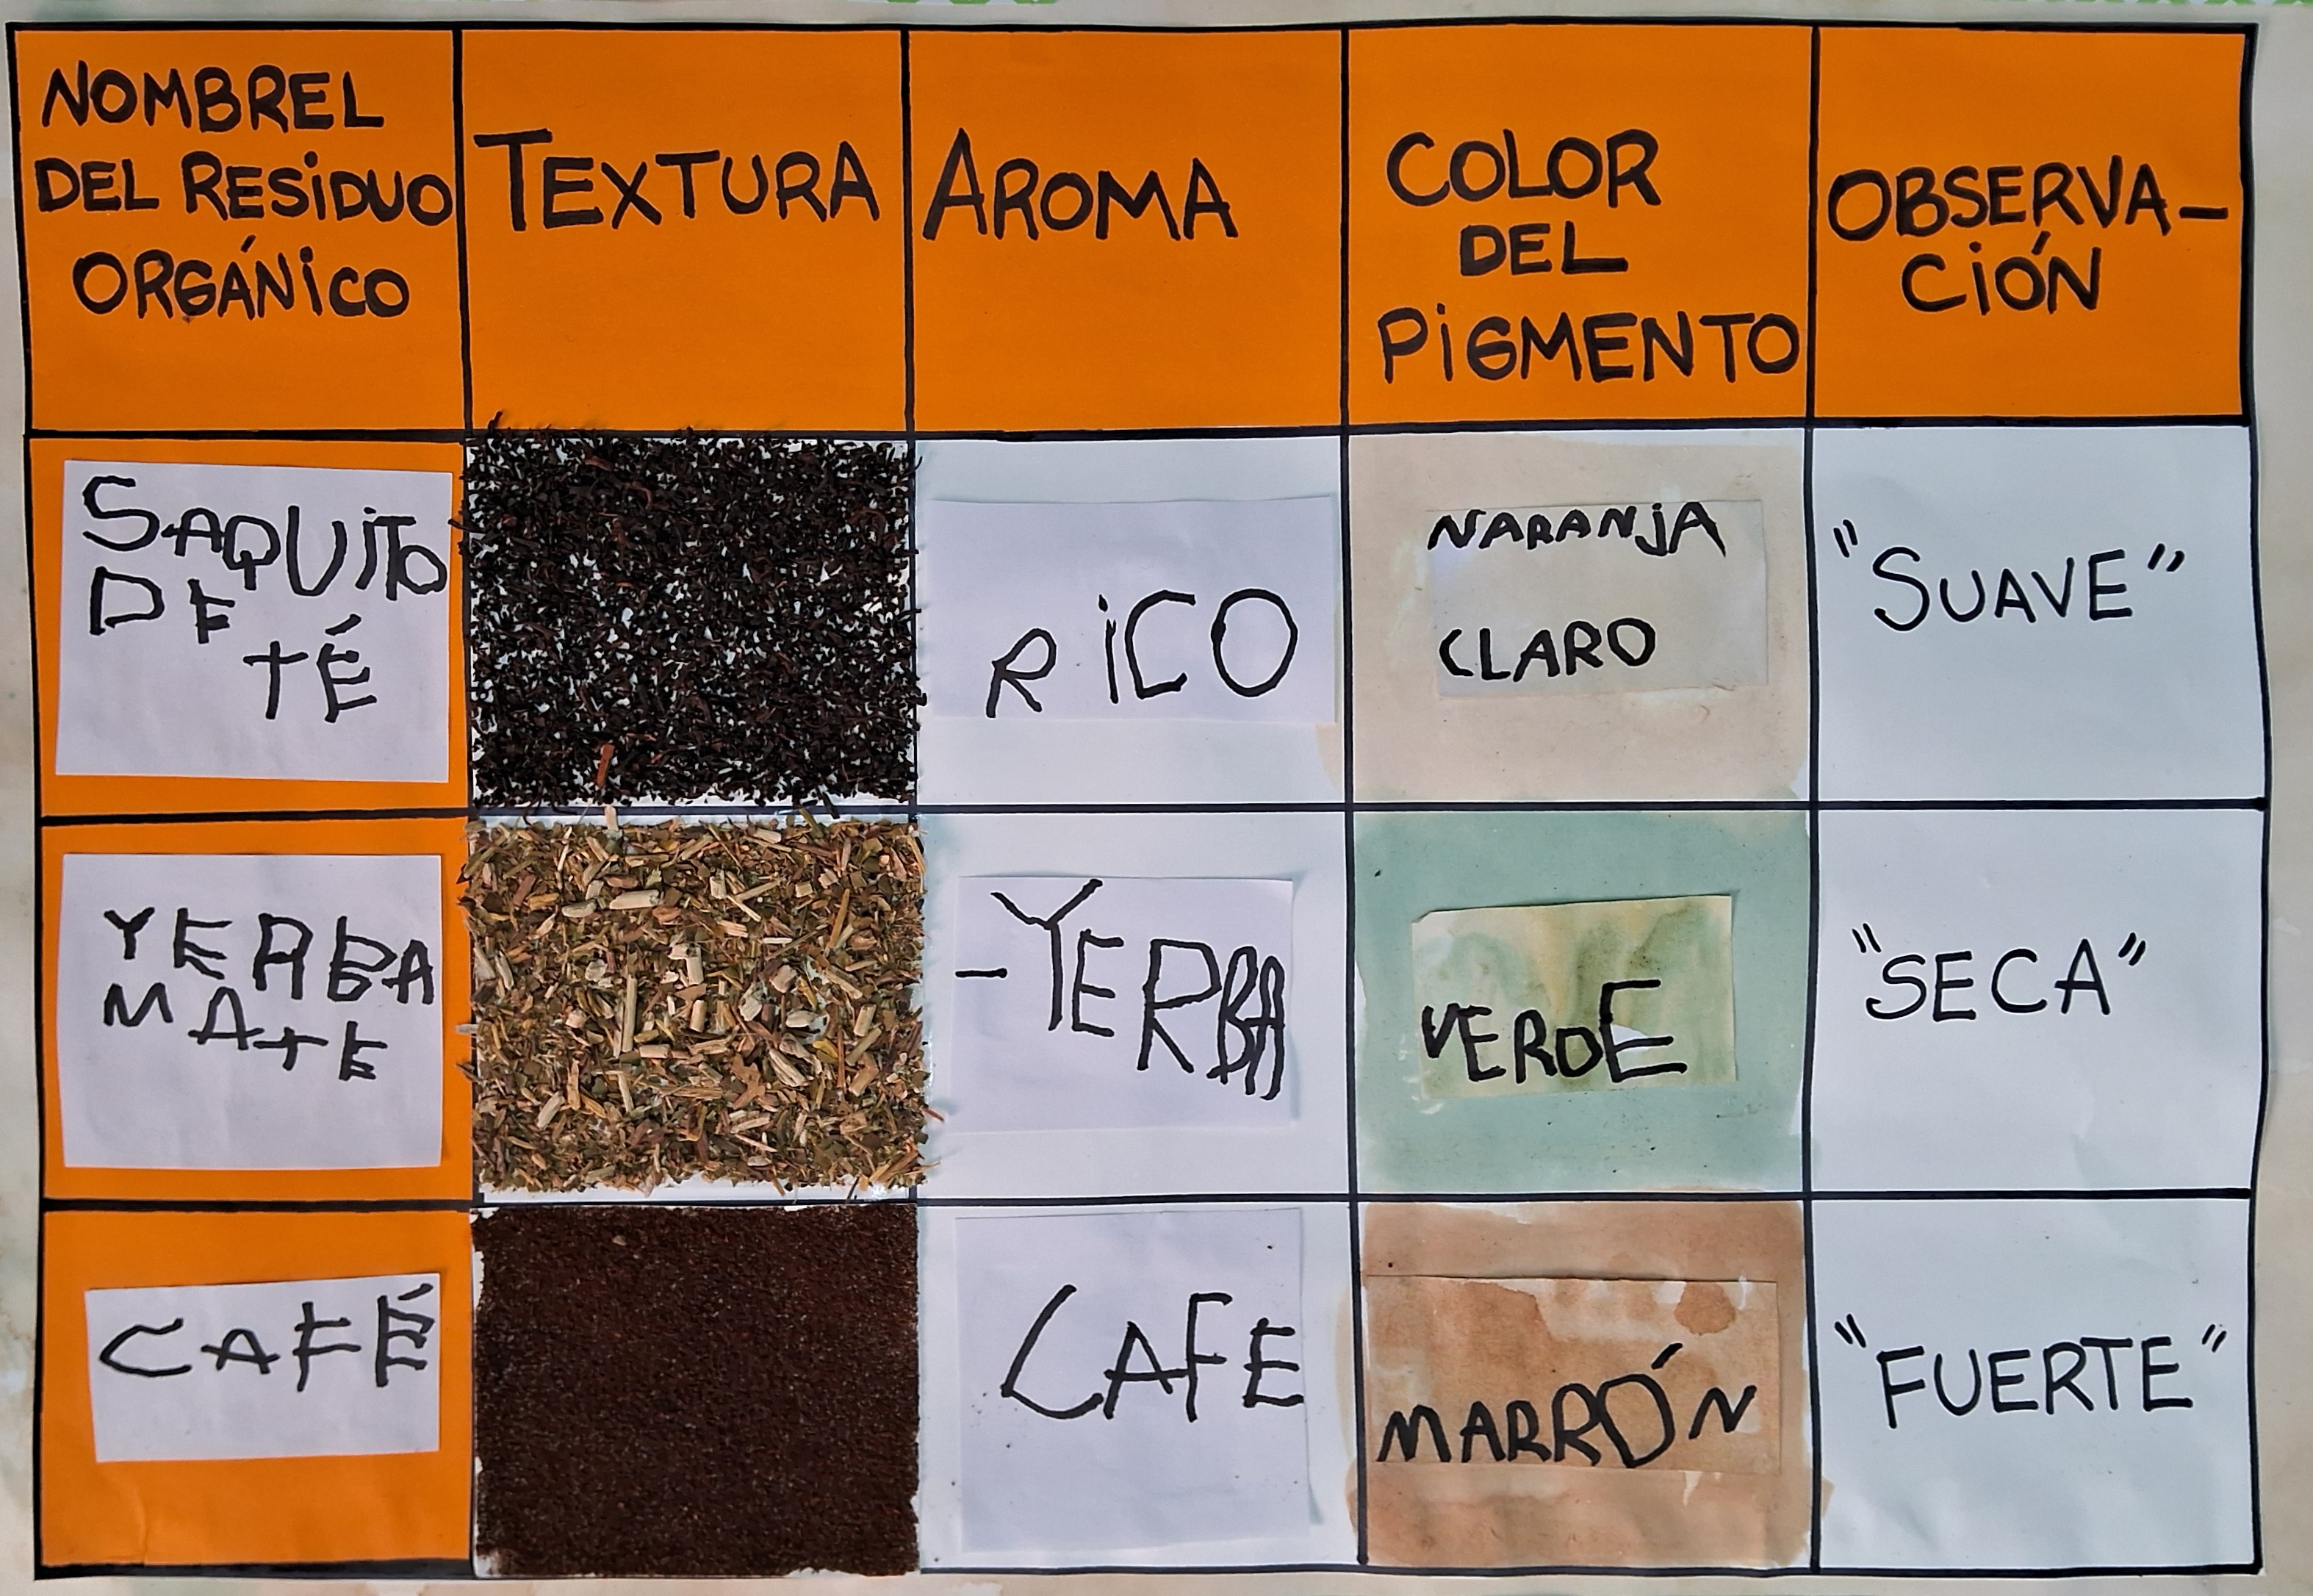 NOMBREL
DEL RESiDUO
ORGÁNiCO
TEXTURA
AROMA
COLOR
DEL
PiGMENTO
OBSERVA-
CiÓN
SAQUiTO
DE
TÉ
RiCO
NARANjA
CLARO
"SUAVE"
YERBA
MATE
-YERBA
VERDE
"SECA"
CAFÉ
CAFE
MARRÓN
"FUERTE"